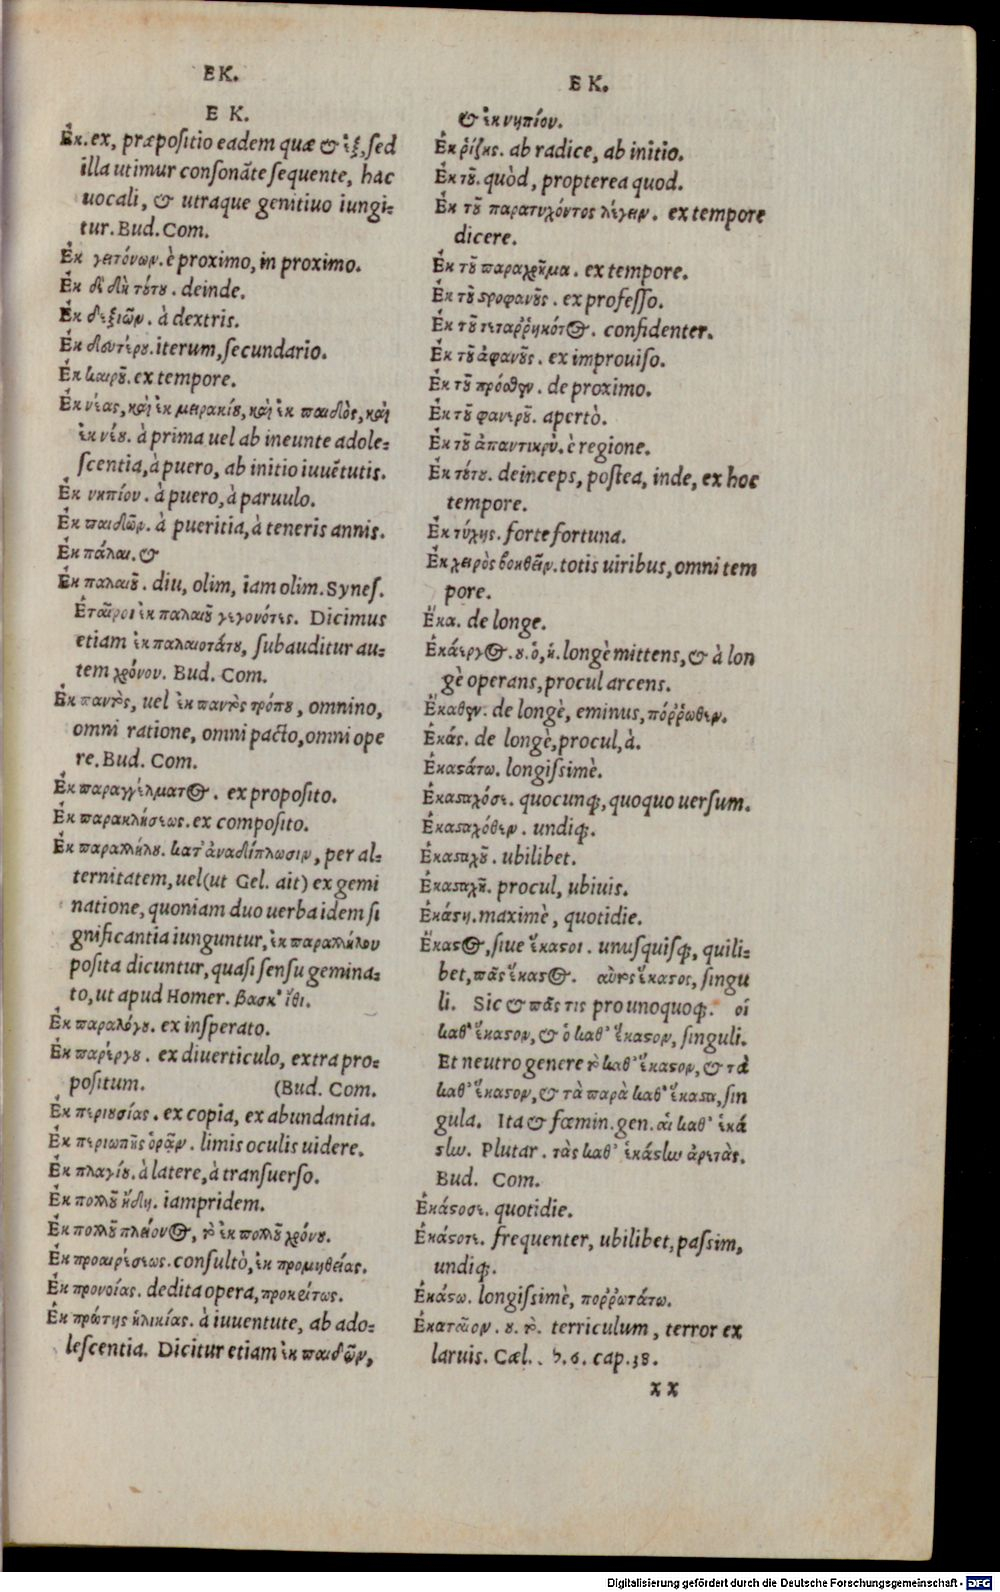 EK.
E K.
Ἐκ. ex, præpositio eadem quæ & ἐξ, sed
illa utimur consonãte sequente, hac
uocali, & utraque genitiuo iungi=
tur. Bud. Com.
Ἐκ γειτόνων. è proximo, in proximo.
Ἐκ δὲ δὴ τότου. deinde.
Ἐκ δεξιῶν. à dextris.
Ἐκ δευτέρου. iterum, secundario.
Ἐκ καιροῦ. ex tempore.
Ἐκ νέας, καὶ ἐκ μειρακίου, καὶ ἐκ παιδὸς, καὶ
ἐκ νέου. à prima uel ab ineunte adole=
scentia, à puero, ab initio iuuẽtutis.
Ἐκ νηπίου. à puero, à paruulo.
Ἐκ παιδῶν. à pueritia, à teneris annis.
Ἐκ πάλαι. &
Ἐκ παλαιοῦ. diu, olim, iam olim. Synes.
Ἑταῖροι ἐκ παλαιοῦ γεγονότες. Dicimus
etiam ἐκ παλαιοτάτου, subauditur au=
tem χρόνου. Bud. Com.
Ἐκ παντὸς, uel ἐκ παντὸς τρόπου, omnino,
omni ratione, omni pacto, omni ope
re. Bud. Com.
Ἐκ παραγγέλματος. ex proposito.
Ἐκ παρακλήσεως. ex composito.
Ἐκ παραλλήλου. κατ᾽ ἀναδίπλωσιν, per al=
ternitatem, uel (ut Gel. ait) ex gemi
natione, quoniam duo uerba idem si
gnificantia iunguntur, ἐκ παραλλήλου
posita dicuntur, quasi sensu gemina=
to, ut apud Homer. βασκ᾽ ἴθι.
Ἐκ παραλόγου. ex insperato.
Ἐκ παρέργου. ex diuerticulo, extra pro=
positum. (Bud. Com.
Ἐκ περιουσίας. ex copia, ex abundantia.
Ἐκ περιωπῆς ὁρᾷν. limis oculis uidere.
Ἐκ πλαγίου. à latere, à transuerso.
Ἐκ πολλοῦ ἤδη. iampridem.
Ἐκ πολλοῦ πλείονος, τὸ ἐκ πολλοῦ χρόνου.
Ἐκ προαιρέσεως. consultò, ἐκ προμηθείας.
Ἐκ προνοίας. dedita opera, προκείτως.
Ἐκ πρώτης ἡλικίας. à iuuentute, ab ado=
lescentia. Dicitur etiam ἐκ παιδῶν,
E K.
& ἐκ νηπίου.
Ἐκ ῥίζης. ab radice, ab initio.
Ἐκ τοῦ. quòd, propterea quod.
Ἐκ τοῦ παρατυχόντος λέγειν. ex tempore
dicere.
Ἐκ τοῦ παραχρῆμα. ex tempore.
Ἐκ τοῦ προφανοῦς. ex professo.
Ἐκ τοῦ τεταῤῥηκότος. confidenter.
Ἐκ τοῦ ἀφανοῦς. ex improuiso.
Ἐκ τοῦ πρόσθεν. de proximo.
Ἐκ τοῦ φανεροῦ. apertò.
Ἐκ τοῦ ἀπαντικρύ. è regione.
Ἐκ τούτου. deinceps, postea, inde, ex hoc
tempore.
Ἐκ τύχης. forte fortuna.
Ἐκ χειρὸς βοηθεῖν. totis uiribus, omni tem
pore.
Ἕκα. de longe.
Ἑκάεργος. ου. ὁ, ἡ. longè mittens, & à lon
gè operans, procul arcens.
Ἕκαθεν. de longè, eminus, πόῤῥωθεν.
Ἑκάς. de longè, procul, à.
Ἑκαστάτω. longissimè.
Ἑκασταχόσε. quocunq;, quoquo uersum.
Ἑκασταχόθεν. undiq;.
Ἑκασταχοῦ. ubilibet.
Ἑκασταχῆ. procul, ubiuis.
Ἑκάστη. maximè, quotidie.
Ἕκαστος, siue ἕκαστοι. unusquisq;, quili=
bet, πᾶς ἕκαστος. αὐτὸς ἕκαστος, singu
li. Sic & πᾶς τις pro unoquoq;. οἱ
καθ᾽ ἕκαστον, & ὁ καθ᾽ ἕκαστον, singuli.
Et neutro genere τὸ καθ᾽ ἕκαστον, & τὰ
καθ᾽ ἕκαστον, & τὰ παρὰ καθ᾽ ἕκαστα, sin
gula. Ita & fœmin. gen. αἱ καθ᾽ ἑκά
στην. Plutar. τὰς καθ᾽ ἑκάστην ἀρετὰς.
Bud. Com.
Ἑκάστοσε. quotidie.
Ἑκάστοτε. frequenter, ubilibet, passim,
undiq;.
Ἑκάστω. longissimè, ποῤῥωτάτω.
Ἑκαταῖον. ου. τὸ. terriculum, terror ex
laruis. Cæl. . 6. cap. 38.
xx
Digitalisierung gefördert durch die Deutsche Forschungsgemeinschaft - DFG